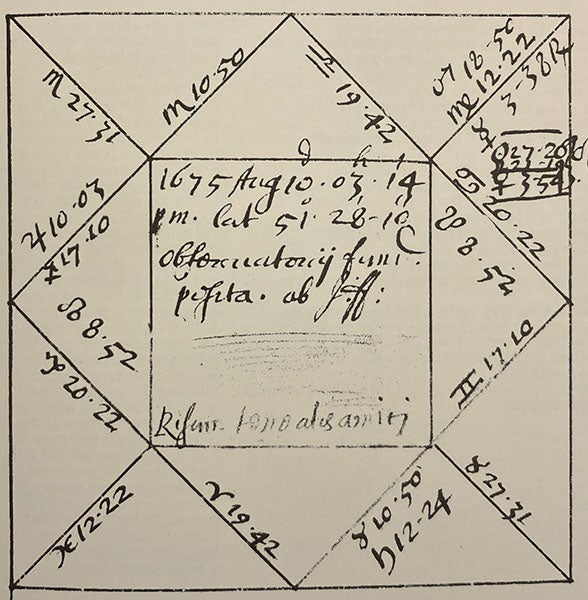 ♏ 10.50
♎ 19.42
♂ 18.50
♍ 12.22
☿ 3-38 ℞
♏ 27.31
d h ,
1675 Aug 10.03.14
pm. lat 51.28-10
☊ 8.52
♋ 20.22
♃ 10.03
♐ 17.10
posita. ab J.ff:
☋ 8.52
♑ 20.22
♊ 17.10
Risum teneatis amici
♓ 12.22
♈ 19.42
♉ 10.50
♄ 12.24
♉ 27.31